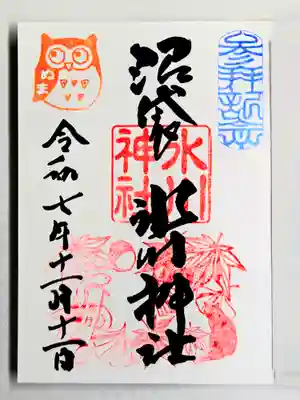 参拝記念
沼袋 氷川神社
氷川
神社
令和七年十一月十一日
ぬま